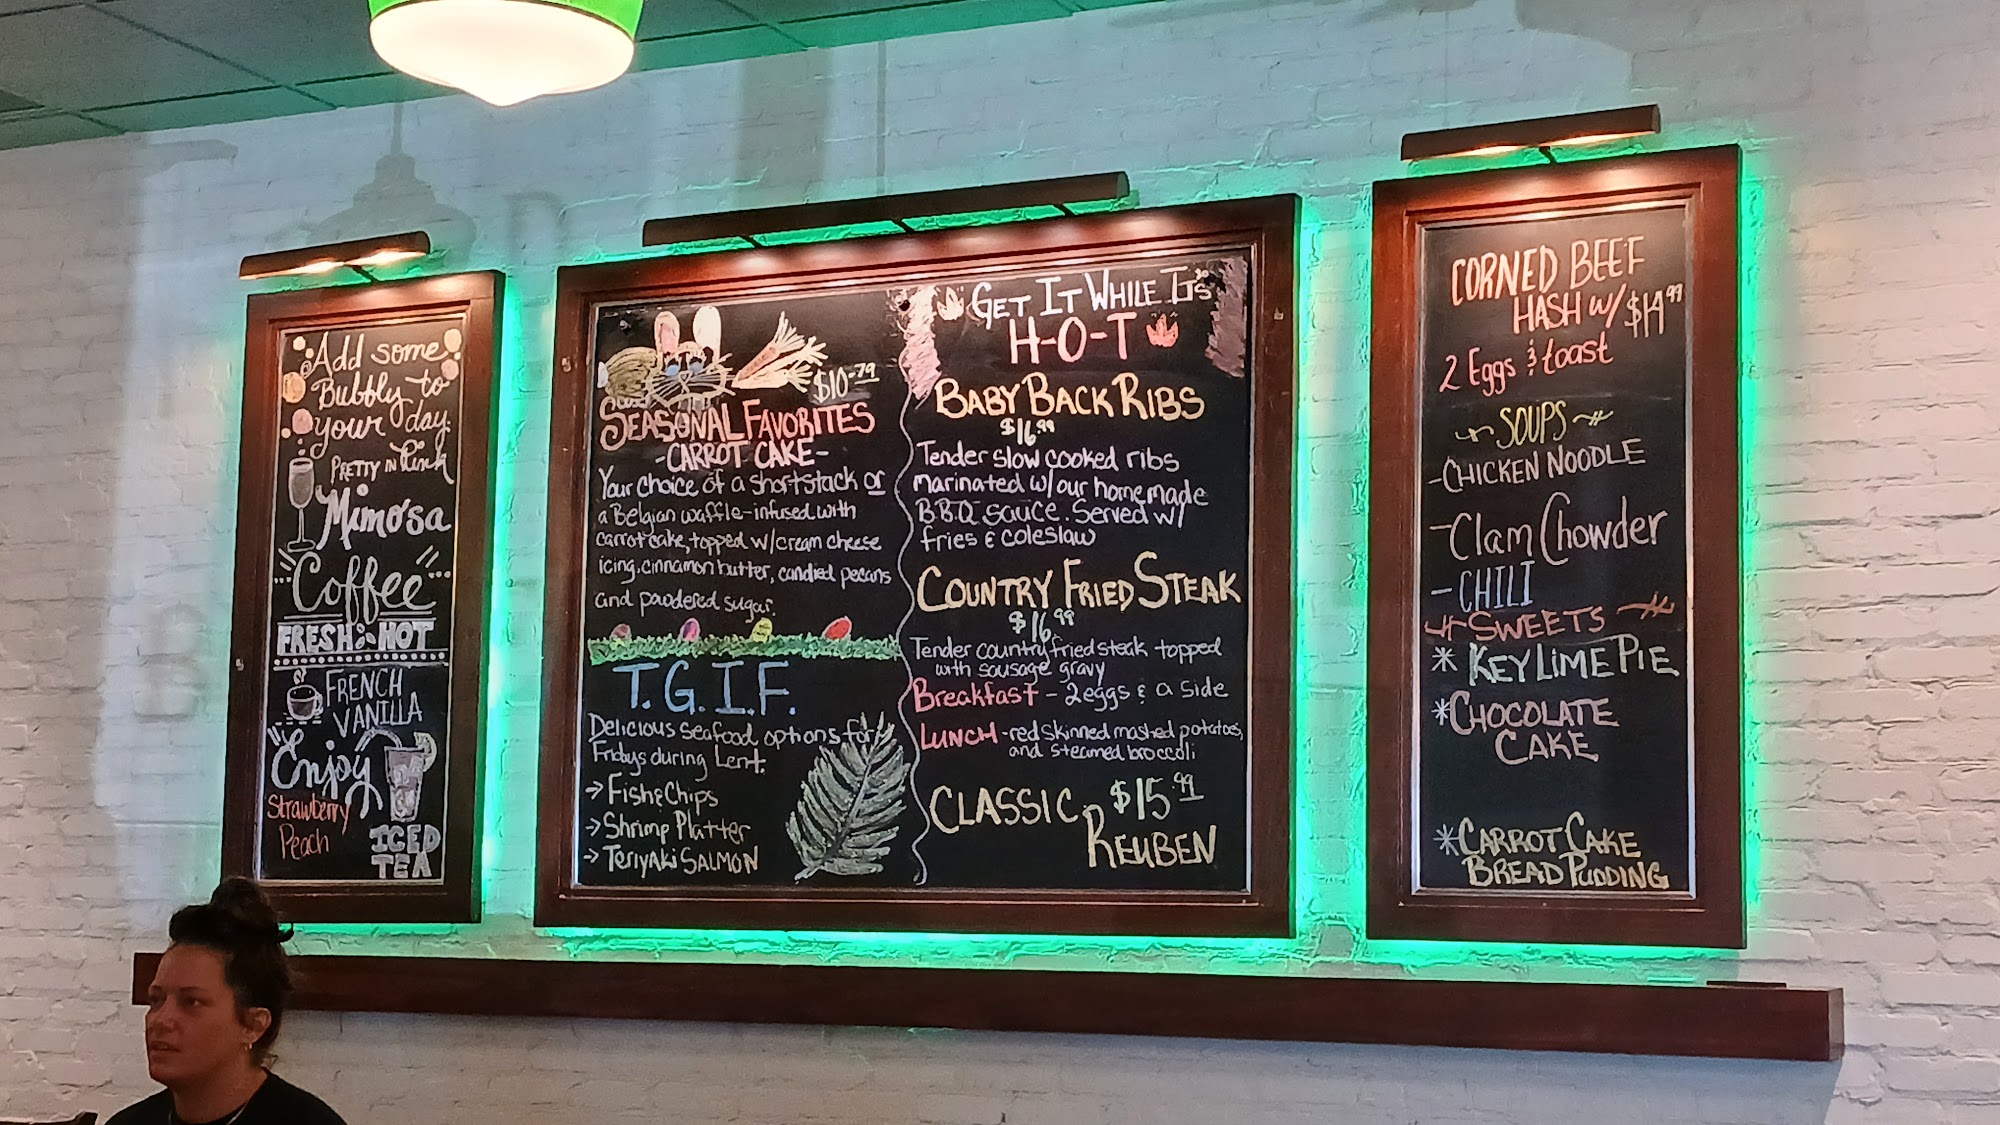 Add some
Bubbly to
your day.
PRETTY IN Pink
Mimosa
"Coffee"
FRESH & HOT
FRENCH
VANILLA
"Enjoy
Strawberry
Peach
ICED
TEA
$10.79
SEASONAL FAVORITES
-CARROT CAKE-
Your choice of a shortstack or
a Belgian waffle-infused with
carrot cake, topped w/cream cheese
icing, cinnamon butter, candied pecans
and powdered sugar.
T.G.I.F.
Delicious seafood options for
Fridys during Lent.
→ Fish & Chips
→ Shrimp Platter
→ Teriyaki SALMON
GET IT WHILE ITS
H-O-T
BABY BACK RIBS
$16.99
Tender slow cooked ribs
marinated w/our homemade
B.B.Q. sauce. Served w/
fries & coleslaw
COUNTRY FRIED STEAK
$16.99
Tender country fried steak topped
with sausage gravy
Breakfast - 2 eggs & a side
LUNCH - red skinned mashed potatoes,
and steamed broccoli
CLASSIC $15.99
REUBEN
CORNED BEEF
HASH w/ $14.99
2 Eggs & toast
SOUPS
-CHICKEN NOODLE
-Clam Chowder
-CHILI
SWEETS
* KEY LIME PIE
*CHOCOLATE
CAKE
*CARROT CAKE
BREAD PUDDING